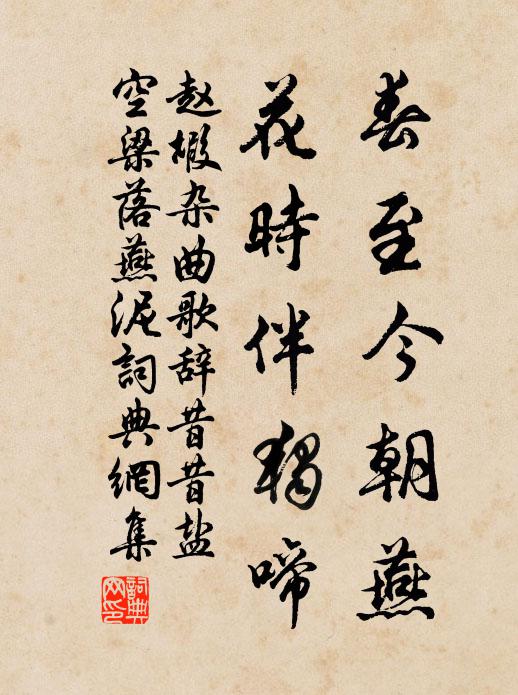 春至今朝燕
花時伴獨啼
赵嘏杂曲歌辞昔昔盐
空梁落燕泥詞典網集
詞典網印